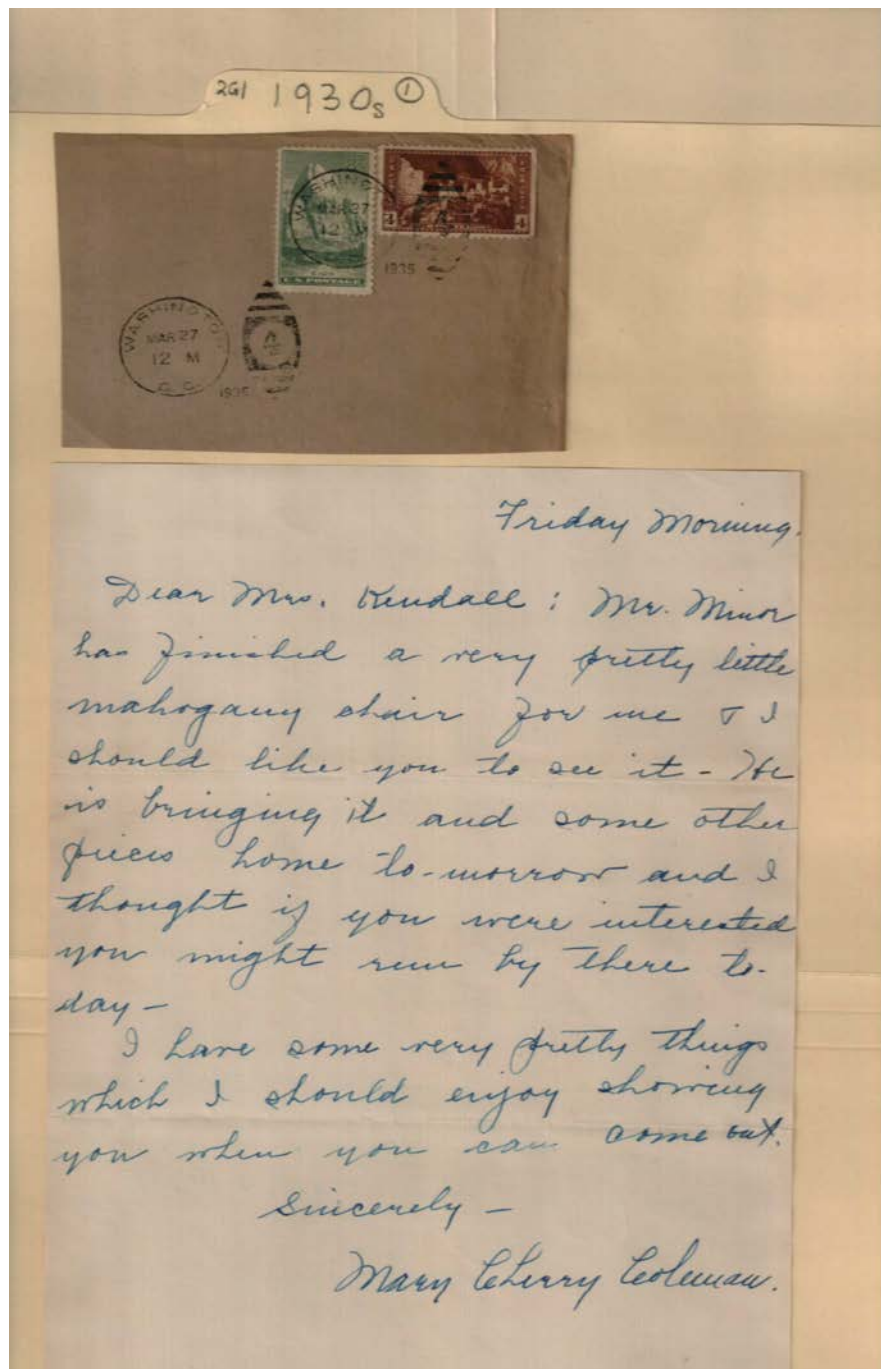 2G1 1930s ①
WASHINGTON
MAR 27
12 M
1935
4 4
U.S. POSTAGE
WASHINGTON
MAR 27
12 M
D.C.
1935
Friday Morning.
Dear Mrs. Kendall : Mr. Minor
has finished a very pretty little
mahogany chair for me & I
should like you to see it - He
is bringing it and some other
pieces home to-morrow and I
thought if you were interested
you might run by there to-
day -
I have some very pretty things
which I should enjoy showing
you when you can come out.
Sincerely -
Mary Cherry Coleman.